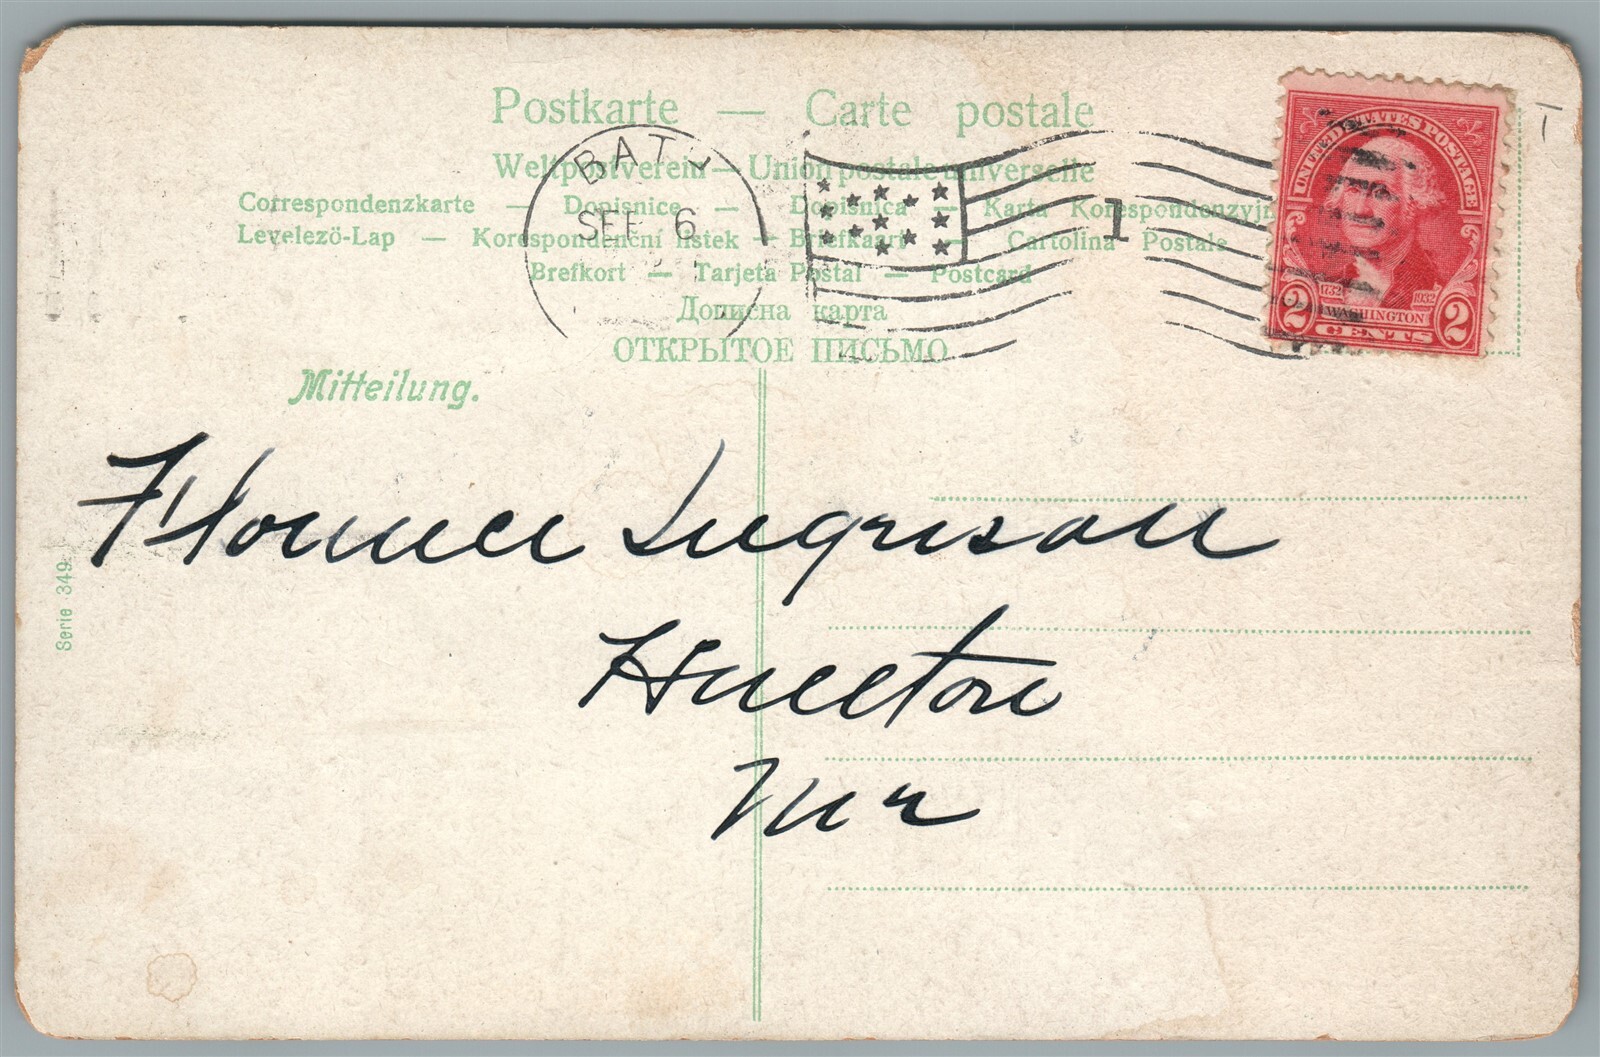 Postkarte — Carte postale
Weltpostverein — Union postale universelle
Correspondenzkarte — Dopisnice — Dopisnica — Karta Korespondenzyjn
Levelezö-Lap — Korespondenční listek — Briefkaart — Cartolina Postale
Brefkort — Tarjeta Postal — Postcard
Дописна карта
ОТКРЫТОЕ ПИСЬМО
Mitteilung.
BATH
SEP 6
1
UNITED STATES POSTAGE
1732 1932
WASHINGTON
2 CENTS 2
Florence
Serie 349.